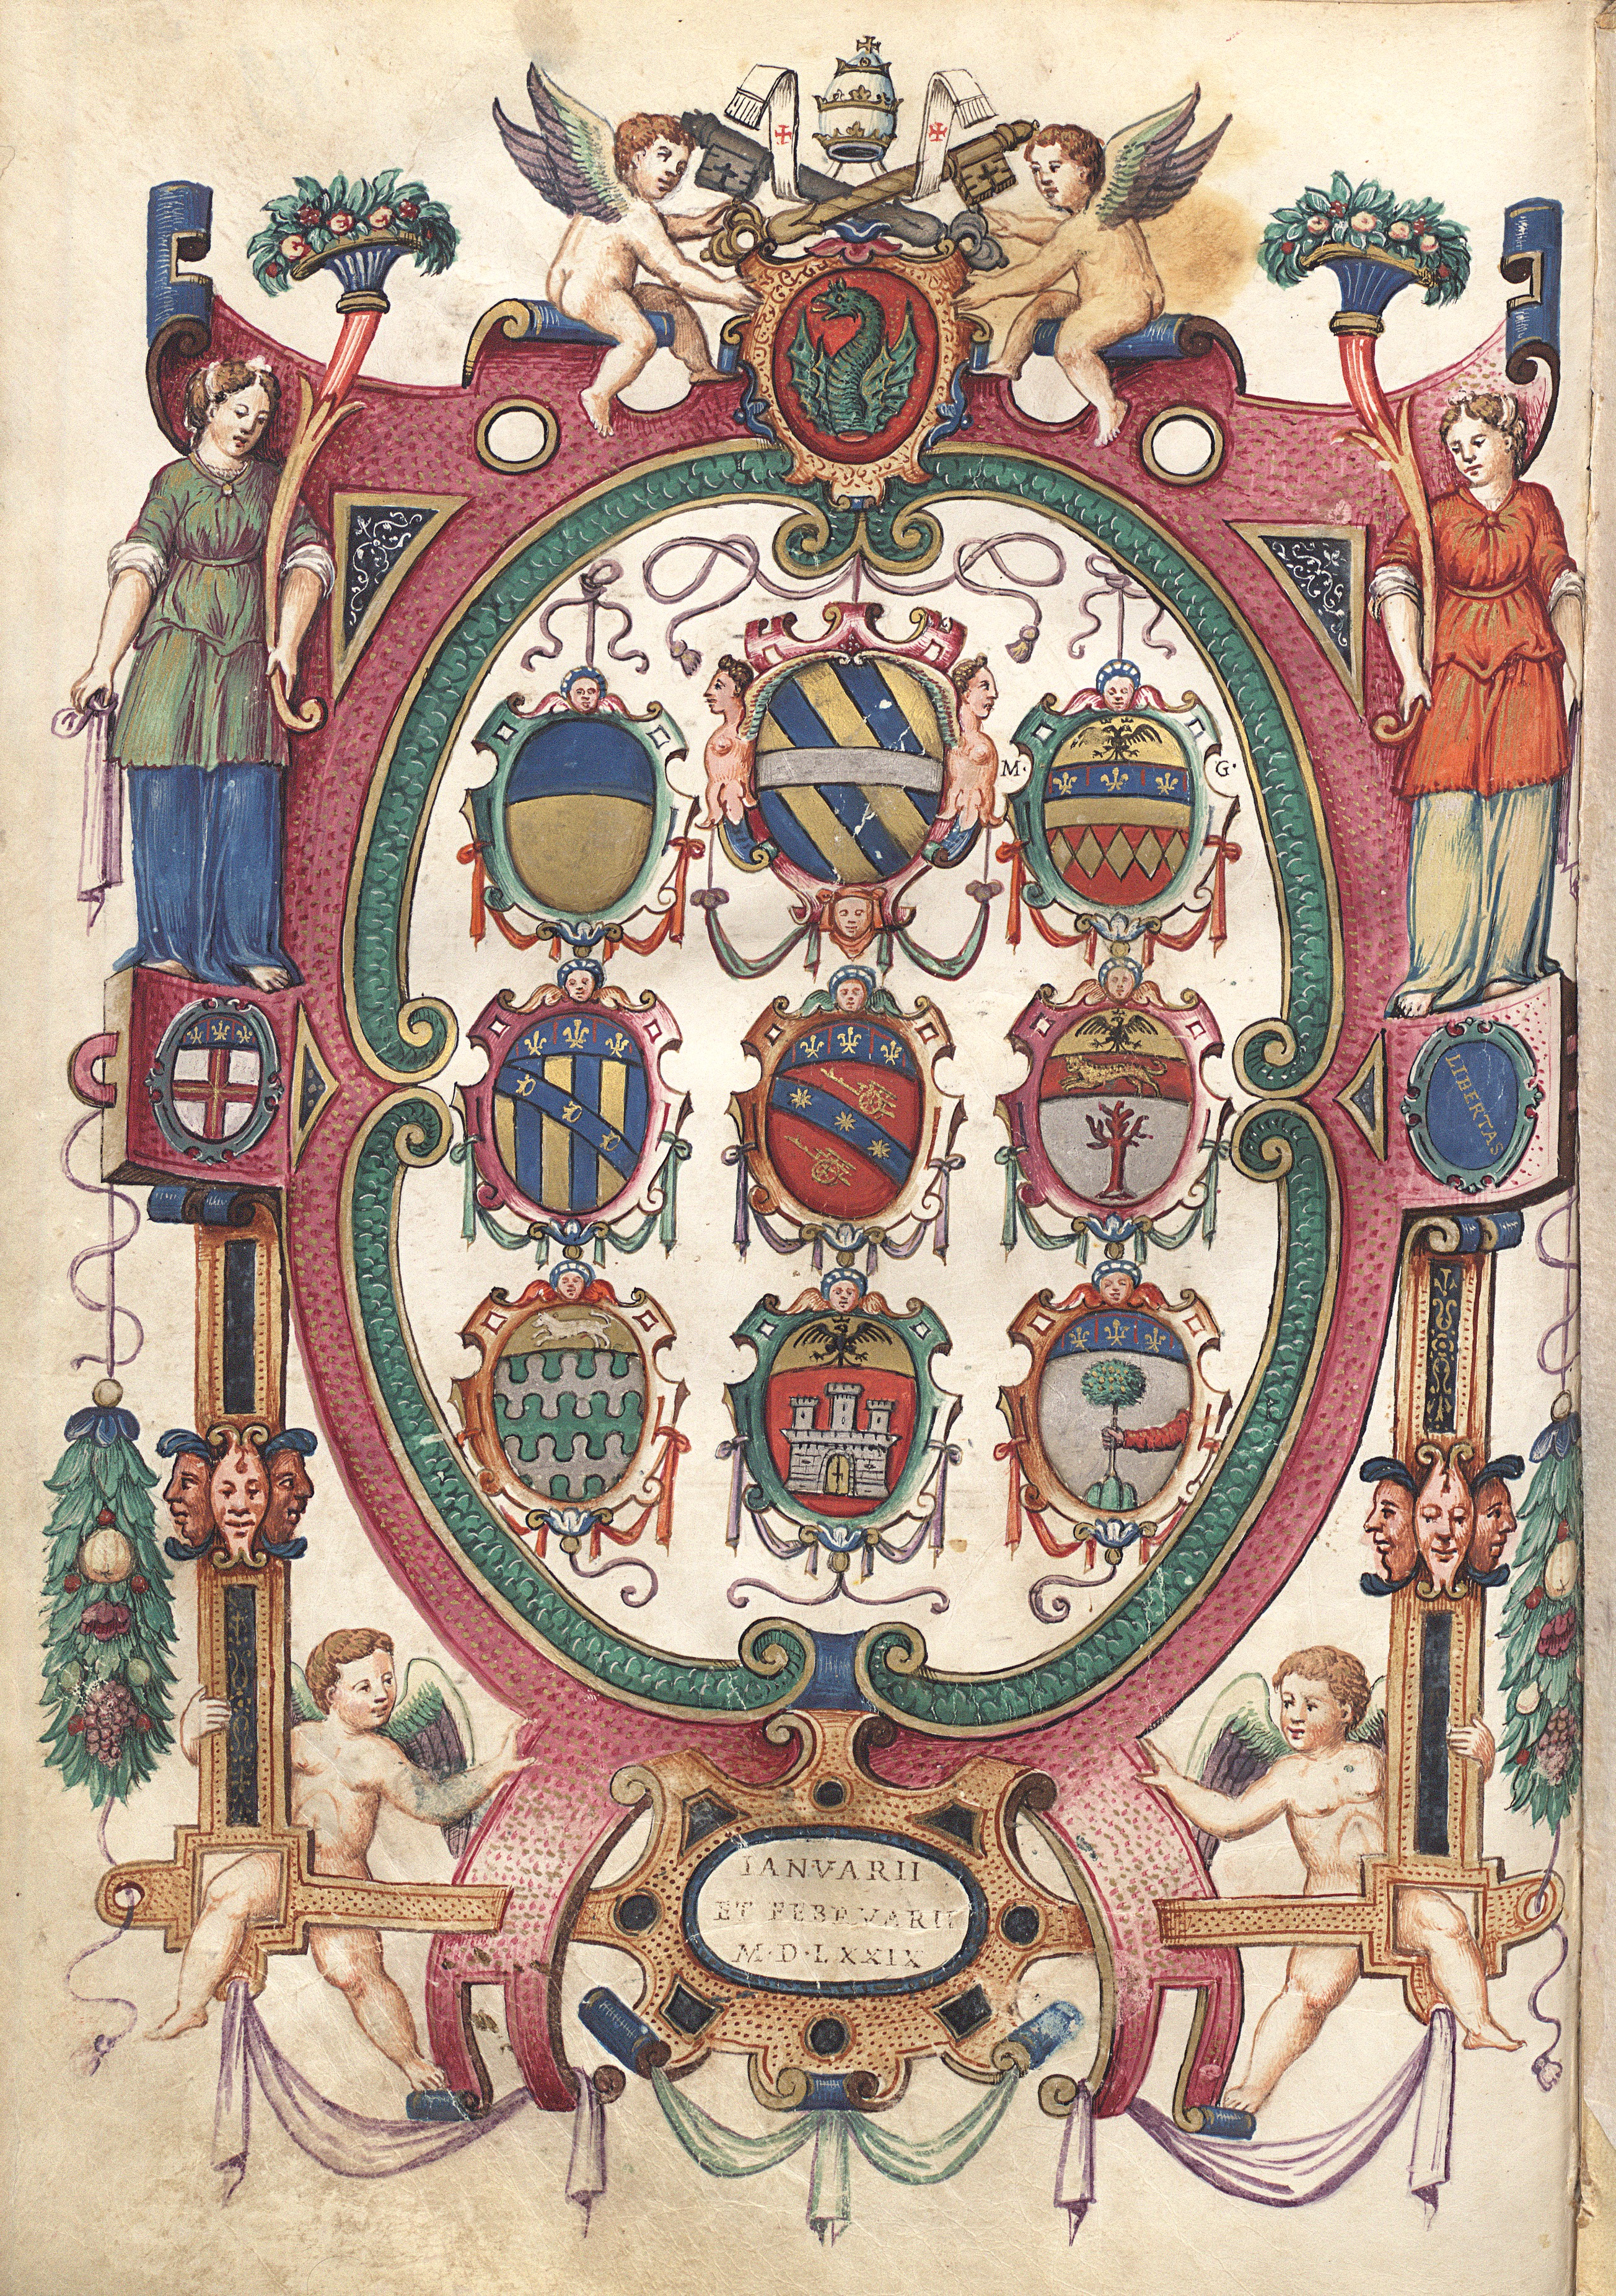 M· G·
LIBERTAS
IANVARII
ET FEBRVARII
M·D·LXXIX